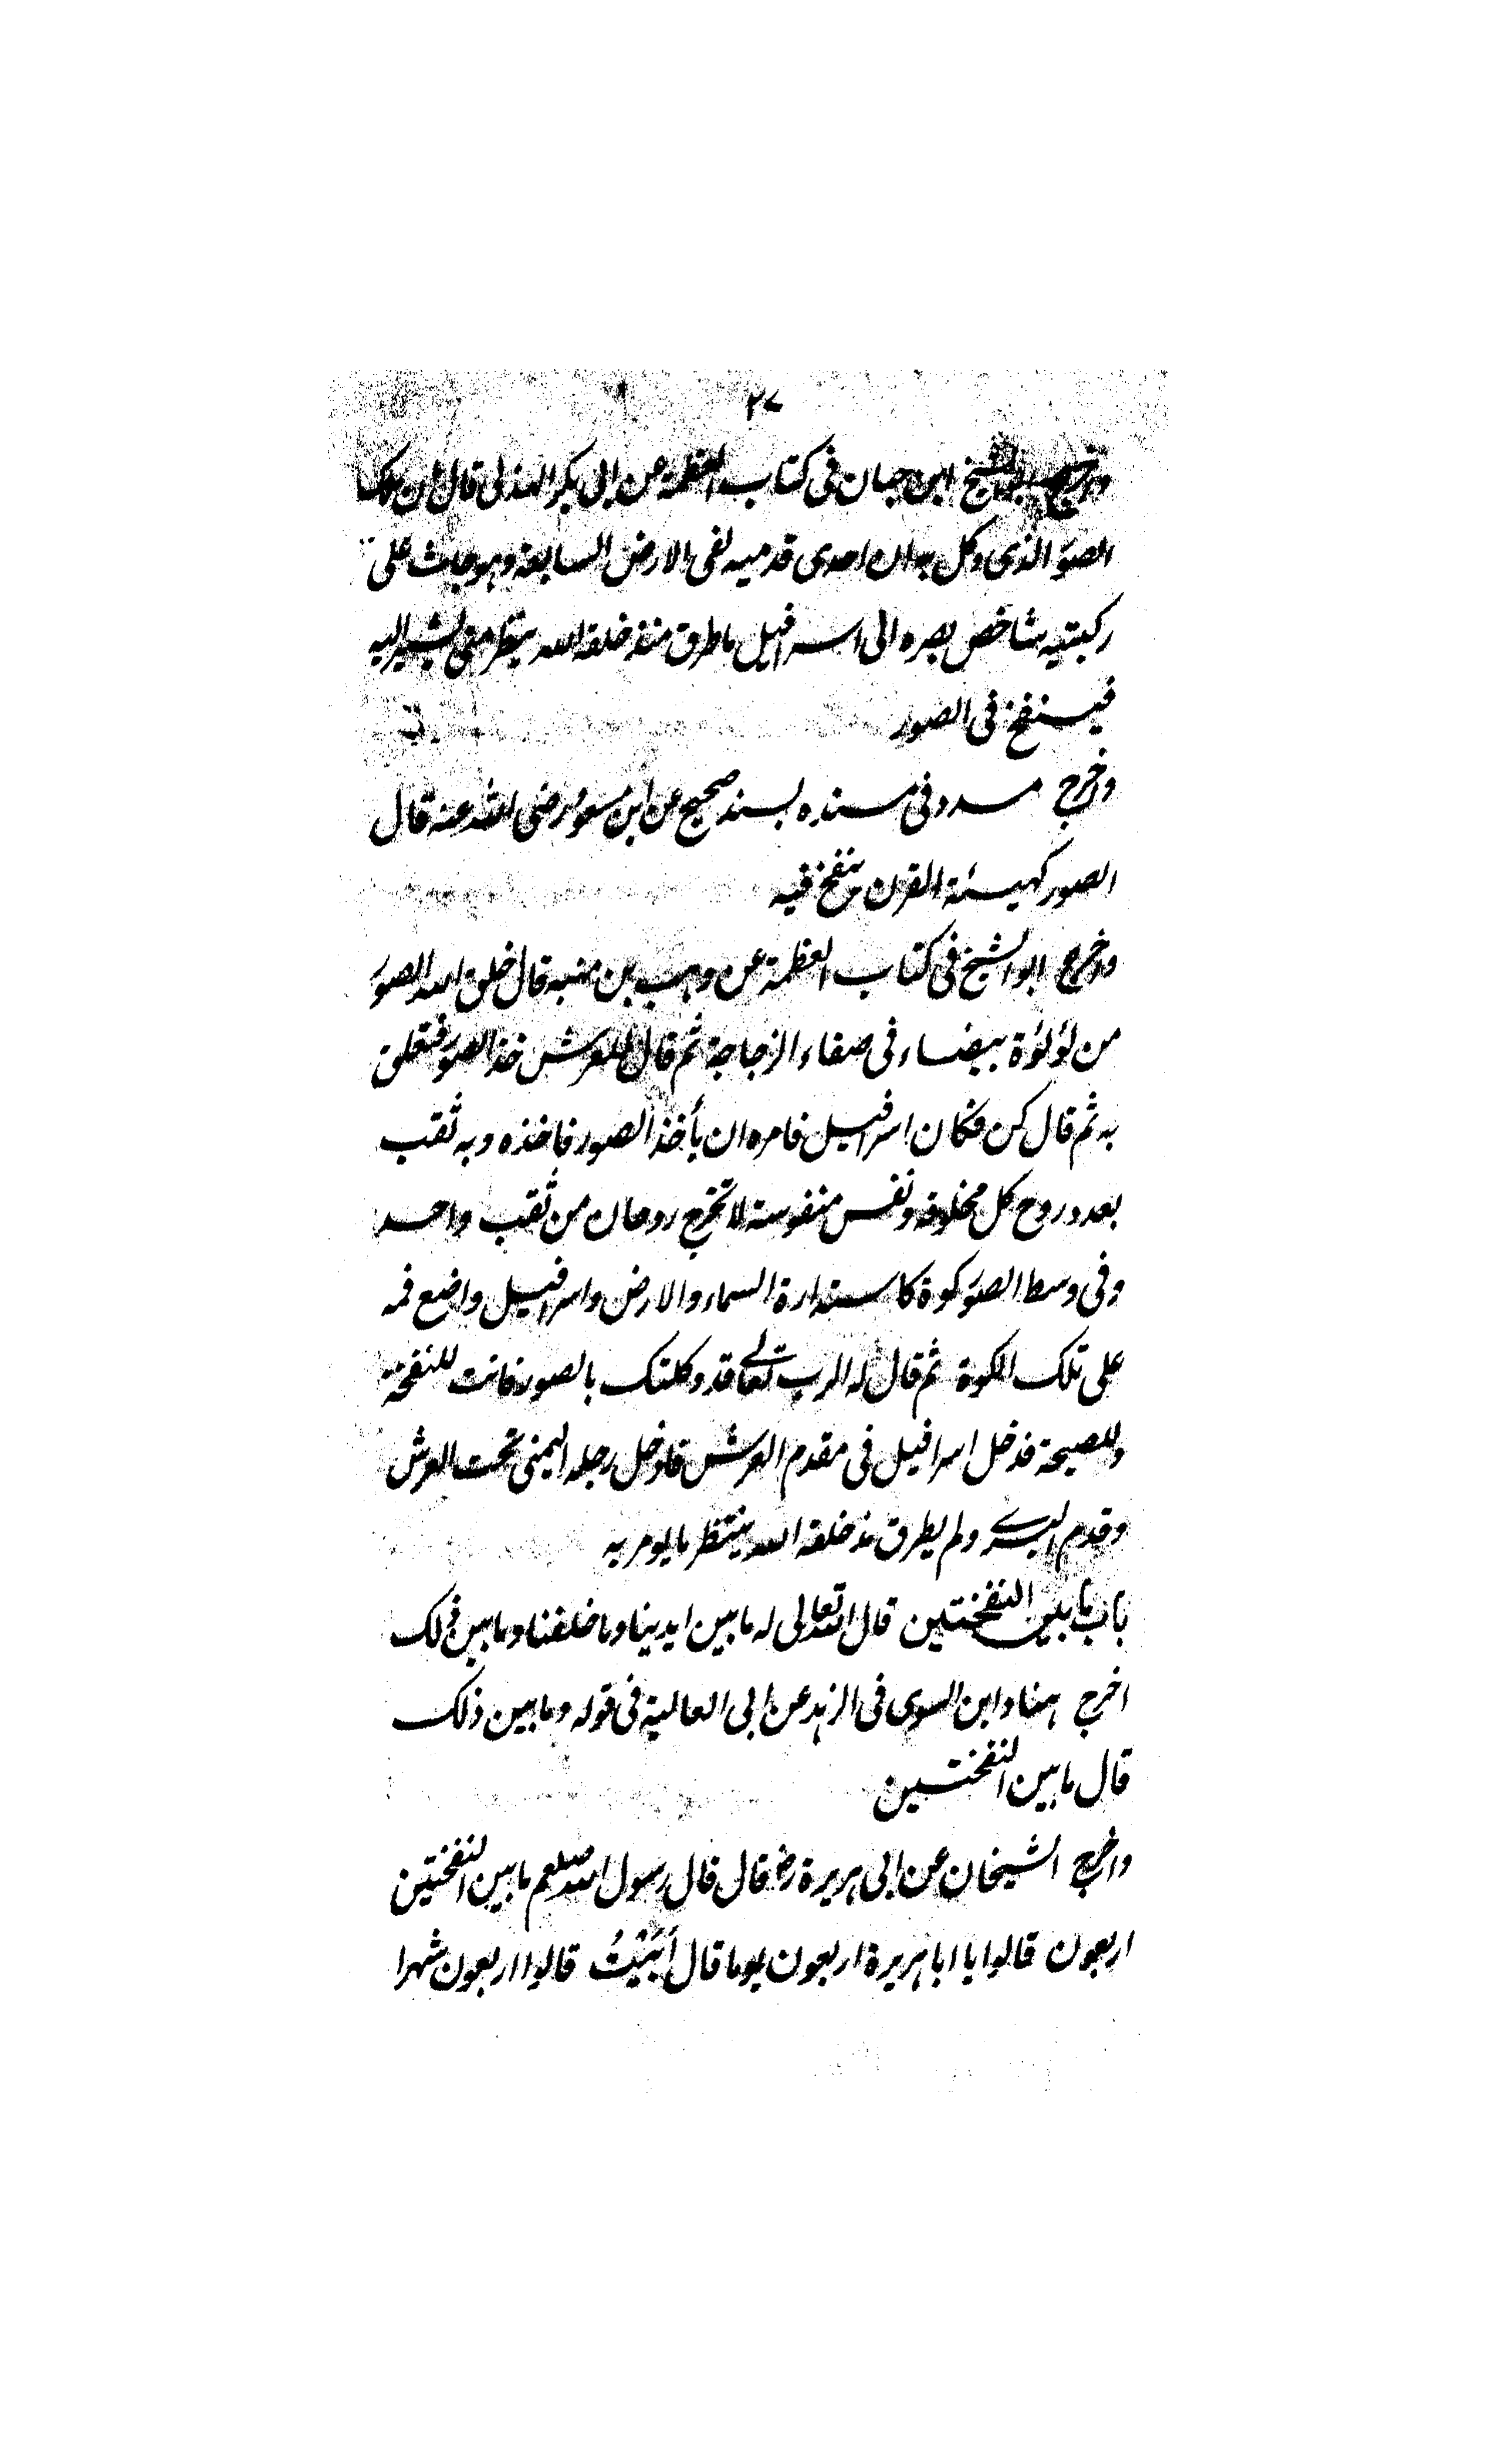 ٢٧
واخرج ابو الشيخ ابن حبان فى كتاب العظمة عن ابى بكر الهذلى قال ان ملك
الصور الذى وكل به ان احدى قدميه لفى الارض السابعة وهو جاث على
ركبتيه شاخص بصره الى اسرافيل ماطرق منذ خلقه الله ينتظر متى يشير اليه
فينفخ فى الصور
واخرج مسدد فى مسنده بسند صحيح عن ابن مسعود رضى الله عنه قال
الصور كهيئة القرن ينفخ فيه
واخرج ابو الشيخ فى كتاب العظمة عن وهب بن منبه قال خلق الله الصور
من لؤلؤة بيضاء فى صفاء الزجاجة ثم قال للعرش خذ الصور فتعلق
به ثم قال كن فكان اسرافيل فامره ان يأخذ الصور فاخذه وبه ثقب
بعدد روح كل مخلوقة ونفس منفوسة لا تخرج روحان من ثقب واحد
وفى وسط الصور كوة كاستدارة السماء والارض واسرافيل واضع فمه
على تلك الكوة ثم قال له الرب تعالى قد وكلتك بالصور فانت للنفخة
وللصيحة فدخل اسرافيل فى مقدم العرش فادخل رجله اليمنى تحت العرش
وقدم اليسرى ولم يطرق مذ خلقه الله ينتظر ما يومر به
باب ما بين النفختين قال الله تعالى له ما بين ايدينا وما خلفنا وما بين ذلك
اخرج هناد ابن السرى فى الزهد عن ابى العالية فى قوله وما بين ذلك
قال ما بين النفختين
واخرج الشيخان عن ابى هريرة رض قال قال رسول الله صلعم ما بين النفختين
اربعون قالوا يا ابا هريرة اربعون يوما قال أَبَيْتُ قالوا اربعون شهرا